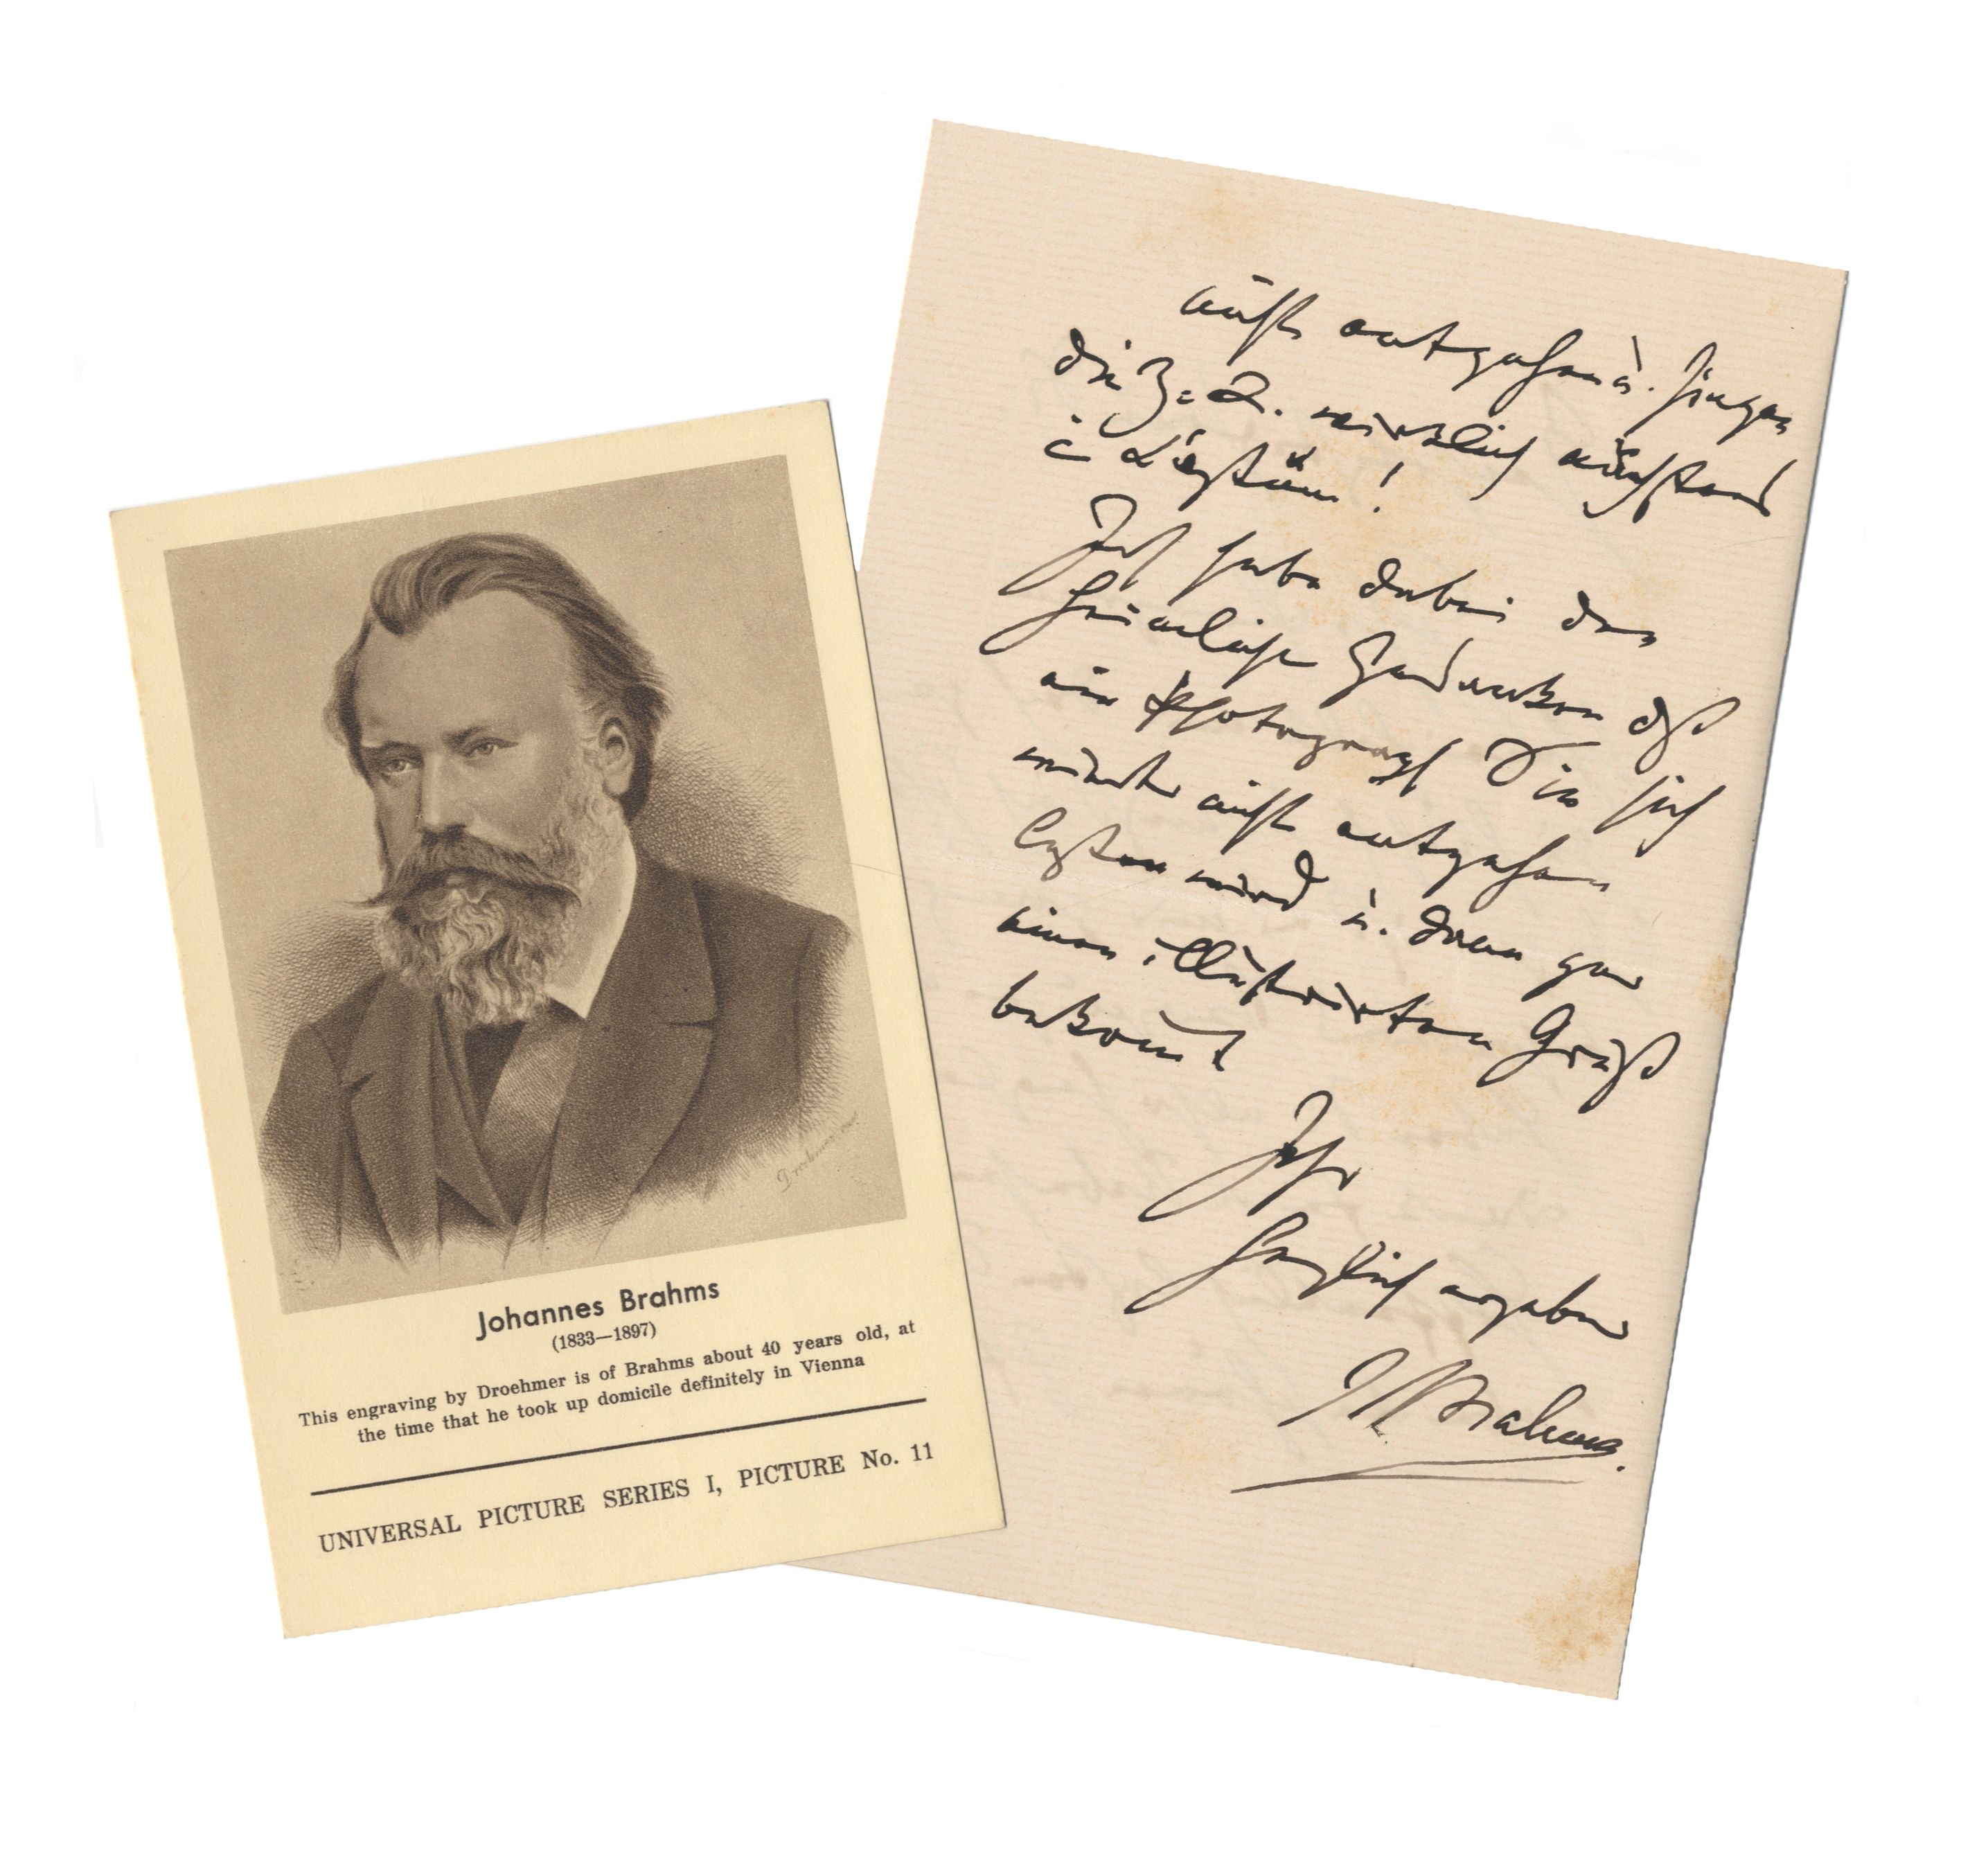 Johannes Brahms
(1833—1897)
This engraving by Droehmer is of Brahms about 40 years old, at
the time that he took up domicile definitely in Vienna
UNIVERSAL PICTURE SERIES I, PICTURE No. 11
Droehmer
nicht entgehen u. singen
die Z.=L. wirklich nächstens
i Costüm!
Ich habe dabei den
Gedanken dß
ein Photograph Sie sich
nicht entgehen
laßen wird u. dann gar
einen illustrirten Gruß
bekom̄t
Ihr
herzlich ergebner
J. Brahms.